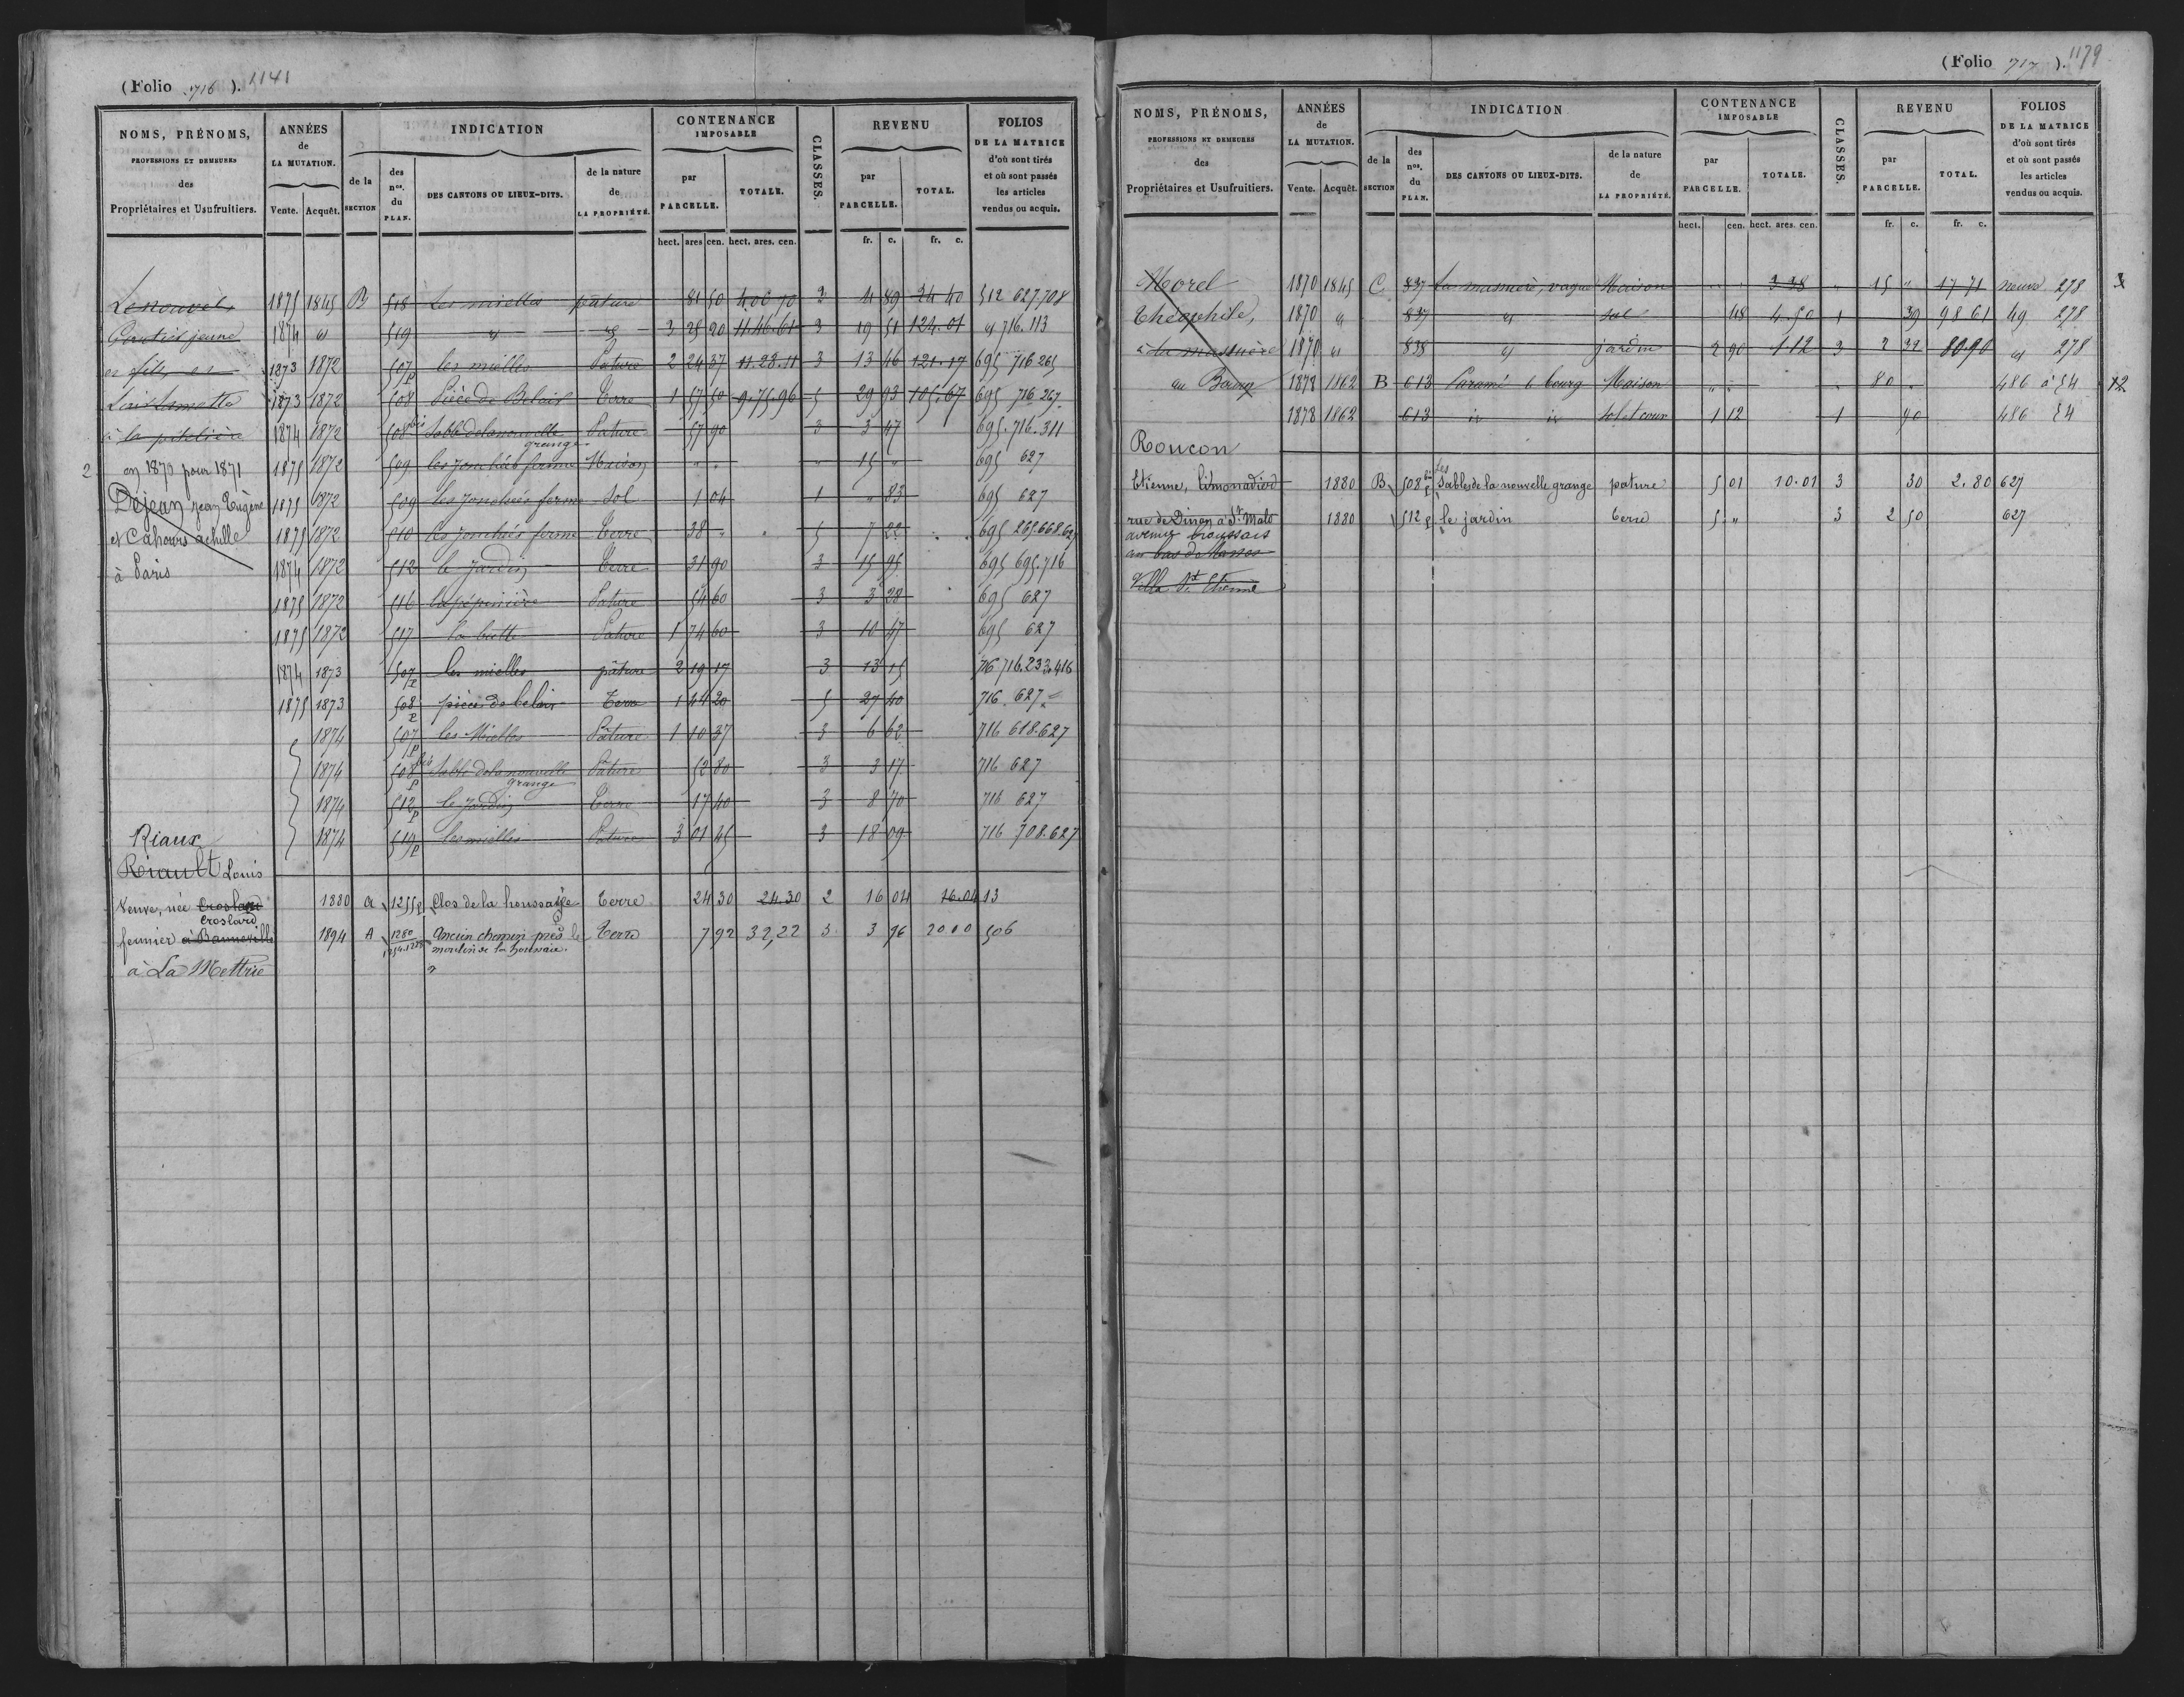 (Folio 716). 1141
NOMS, PRÉNOMS, PROFESSIONS ET DEMEURES des Propriétaires et Usufruitiers.
ANNÉES de LA MUTATION. Vente. Acquêt.
INDICATION de la SECTION des nos. du PLAN. DES CANTONS OU LIEUX-DITS. de la nature de LA PROPRIÉTÉ.
CONTENANCE IMPOSABLE par PARCELLE. TOTALE. hect. ares cen. hect. ares. cen.
CLASSES.
REVENU par PARCELLE. TOTAL. fr. c. fr. c.
FOLIOS DE LA MATRICE d'où sont tirés et où sont passés les articles vendus ou acquis.
Lenouvel 1875 1845 B 518 Les mielles pâture 81 50 2 4 89 24 40 512 627.708
Gautier jeune 1874 " 519 " " 3 25 20 11.46.61 3 19 51 124.01 " 716.113
et fils, et 1873 1872 507 p les mielles Pature 2 24 37 11.23.11 3 13 46 121.17 695 716 265
1873 1872 508 Pièce de Belair Terre 1 57 50 9.75.96 5 29 93 105.67 695 716 267
à la 1874 1872 508 bis Sable de la nouvelle grange Pature 57 90 3 3 47 695.716.311
2 en 1870 pour 1871 1875 1872 509 les jonchées ferme Maison " " " 15 " 695 627
Dejean jean Eugène 1875 1872 509 les jonchées ferme Sol 1 04 1 " 83 695 627
et Cahours achille 1875 1872 510 les jonchées ferme Terre 38 " 5 7 22 695 265.668.627
à Paris 1874 1872 512 le jardin Terre 31 90 3 15 95 695 695.716
1875 1872 516 la pépinière Pature 54 60 3 3 28 695 627
1875 1872 517 la butte Pature 1 74 60 3 10 47 695 627
1874 1873 507 p les mielles pâture 2 19 17 3 13 15 716 716.233.416
1875 1873 508 p pièce de belair Terre 1 44 20 5 27 40 716 627
1874 507 p les Mielles Pâture 1 10 37 3 6 62 716 618.627
1874 508 bis p Sable de la nouvelle grange Pâture 52 80 3 3 17 716 627
1874 512 p le jardin Terre 17 40 3 8 70 716 627
Riaux 1874 519 p les mielles Pature 3 01 45 3 18 09 716 708.627
Riault Louis
Veuve, née Croslard 1880 A 1255 p Clos de la houssaye Terre 24 30 24.30 2 16 04 16.04 13
Croslard
fermier à Banneville 1894 A 1280 Ancien chemin près le Terre 7 92 32,22 3 3 96 20 00 506
moulin de la houssaie.
à La Mettrie
(Folio 717). 1179
NOMS, PRÉNOMS, PROFESSIONS ET DEMEURES des Propriétaires et Usufruitiers.
ANNÉES de LA MUTATION. Vente. Acquêt.
INDICATION de la SECTION des nos. du PLAN. DES CANTONS OU LIEUX-DITS. de la nature de LA PROPRIÉTÉ.
CONTENANCE IMPOSABLE par PARCELLE. TOTALE. hect. cen. hect. ares. cen.
CLASSES.
REVENU par PARCELLE. TOTAL. fr. c. fr. c.
FOLIOS DE LA MATRICE d'où sont tirés et où sont passés les articles vendus ou acquis.
Morel 1870 1845 C 837 La masnière, vague Maison " " 3 38 " 15 " 17 71 neuve 278
Théophile, 1870 " 837 " sol 48 4.50 1 39 98 61 49 278
à la masnière 1870 " 838 " jardin 2 90 1 12 3 2 32 80.90 " 278
au Bourg 1878 1862 B 613 Paramé le bourg Maison " " " 80 " 486 à 54 12
1878 1862 613 id id sol et cour 1 12 1 90 486 54
Roucon
Etienne, limonadier 1880 B 508 bis p Les Sables de la nouvelle grange pature 5 01 10.01 3 30 2.80 627
rue de Dinan à St. Malo 1880 512 p le jardin terre 5 " 3 2 50 627
avenue broussais
au bas de
Villa St. Etienne